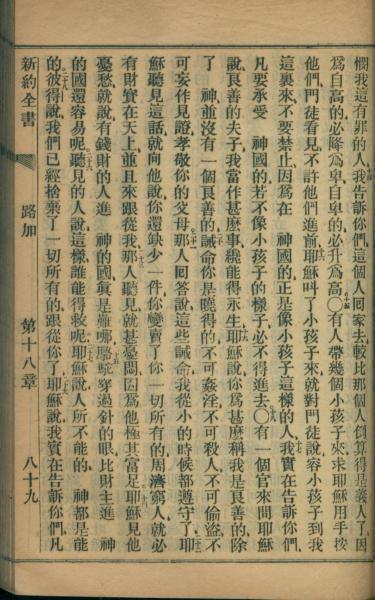 憫我這有罪的人我告訴你們這個人回家去較比那個人倒算得是義人了因
爲自高的必降爲卑自卑的必升爲高〇有人帶幾個小孩子來求耶穌用手按
他們門徒看見不許他們進前耶穌叫了小孩子來就對門徒說容小孩子到我
這裏來不要禁止因爲在　神國的正是像小孩子這樣的人我實在告訴你們
凡要承受　神國的若不像小孩子的樣子必不得進去〇有一個官來問耶穌
說良善的夫子我當作甚麼事纔能得永生耶穌說你爲甚麼稱我是良善的除
了　神並沒有一個良善的誡命你是曉得的不可姦淫不可殺人不可偷盜不
可妄作見證孝敬你的父母那人回答說這些誡命我從小的時候都遵守了耶
穌聽見這話就向他說你還缺少一件你變賣了你一切所有的周濟窮人就必
有財寶在天上並且來跟從我那人聽見就甚憂悶因爲他極其富足耶穌見他
憂愁就說有錢財的人進　神的國眞是難哪駱駝穿過針的眼比財主進　神
的國還容易呢聽見的人說這樣誰能得救呢耶穌說人所不能的　神都是能
的彼得說我們已經捨棄了一切所有的跟從你了耶穌說我實在告訴你們凡
新約全書　路加　第十八章　八十九